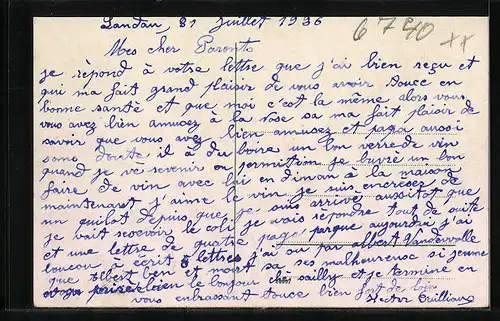 Landau, 31 Juillet 1936
6790
xx
Mes cher Parents
je répond à votre lettre que j'ai bien reçu et
qui ma fait grand plaisir de vous avoir touce en
bonne santé et que moi c'est la même alors vous
vous avez bien amusez à la Nose sa ma fait plaisir de
savoir que vous avez bien amusez et papa aussi
sans doute il à du boire un bon verre de vin
quand je ve revenir en permition je buvré un bon
faire de vin avec lui en dinan à la maison
maintenant j'aime le vin je suis encresez de
un quilot Depuis que je suis arrivé aussitôt que
je vait recevoir le coli je vais répondre tout de suite
et une lettre de quatre page parque aujourdui j'ai
touccou à écrit 5 lettres j'ai ou par Albert Vandewalle
que Albert ben et mort sa ses malheureuse si jeune
bien le bonjour chè sailly et je termine en
vous enbrassant touce bien fort de loin